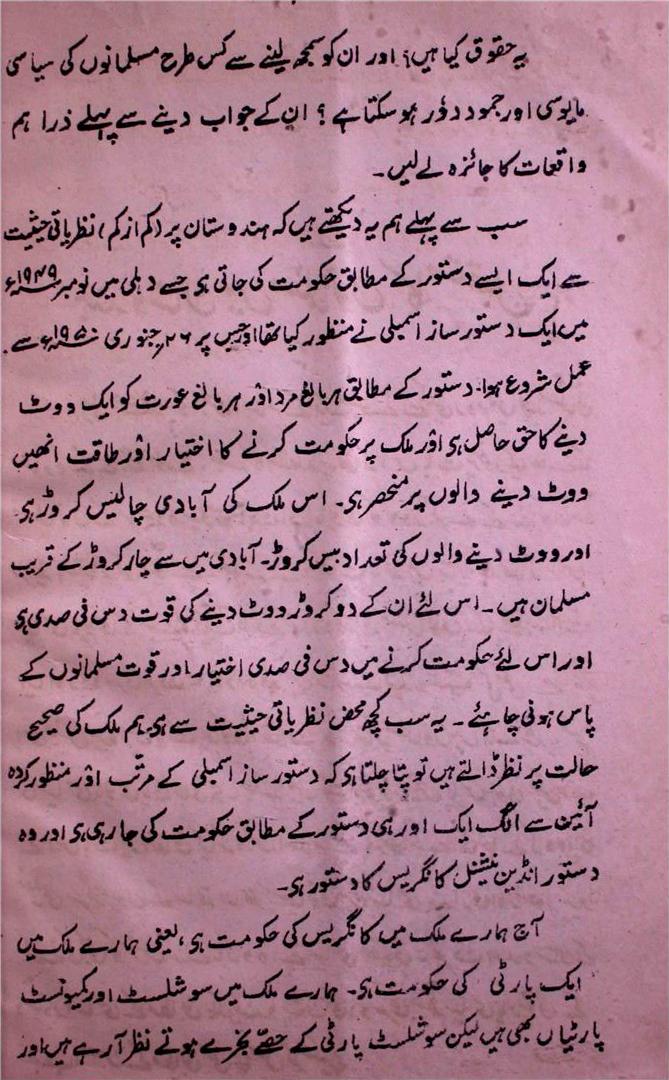 یہ حقوق کیا ہیں؟ اور ان کو سمجھ لینے سے کس طرح مسلمانوں کی سیاسی
مایوسی اور جمود دور ہو سکتا ہے؟ ان کے جواب دینے سے پہلے ذرا ہم
واقعات کا جائزہ لے لیں۔
سب سے پہلے ہم یہ دیکھتے ہیں کہ ہندوستان پر (کم از کم) نظریاتی حیثیت
سے ایک ایسے دستور کے مطابق حکومت کی جاتی ہی جسے دہلی میں نومبر ۱۹۴۹ء
میں ایک دستور ساز اسمبلی نے منظور کیا تھا اور جس پر ۲۶؍ جنوری ۱۹۵۰ء سے
عمل شروع ہوا۔ دستور کے مطابق ہر بالغ مرد اور ہر بالغ عورت کو ایک ووٹ
دینے کا حق حاصل ہی اور ملک پر حکومت کرنے کا اختیار اور طاقت انھیں
ووٹ دینے والوں پر منحصر ہی۔ اس ملک کی آبادی چالیس کروڑ ہی۔
اور ووٹ دینے والوں کی تعداد بیس کروڑ۔ آبادی میں سے چار کروڑ کے قریب
مسلمان ہیں۔ اس لئے ان کے دو کروڑ ووٹ دینے کی قوت دس فی صدی ہی
اور اس لئے حکومت کرنے میں دس فی صدی اختیار اور قوت مسلمانوں کے
پاس ہونی چاہئے۔ یہ سب کچھ محض نظریاتی حیثیت سے ہی۔ ہم ملک کی صحیح
حالت پر نظر ڈالتے ہیں تو پتا چلتا ہی کہ دستور ساز اسمبلی کے مرتب اور منظور کردہ
آئین سے الگ ایک اور ہی دستور کے مطابق حکومت کی جا رہی ہی اور وہ
دستور انڈین نیشنل کانگریس کا دستور ہی۔
آج ہمارے ملک میں کانگریس کی حکومت ہی، یعنی ہمارے ملک میں
ایک پارٹی کی حکومت ہی۔ ہمارے ملک میں سوشلسٹ اور کمیونسٹ
پارٹیاں بھی ہیں لیکن سوشلسٹ پارٹی کے حصّے بخرے ہوتے نظر آ رہے ہیں، اور